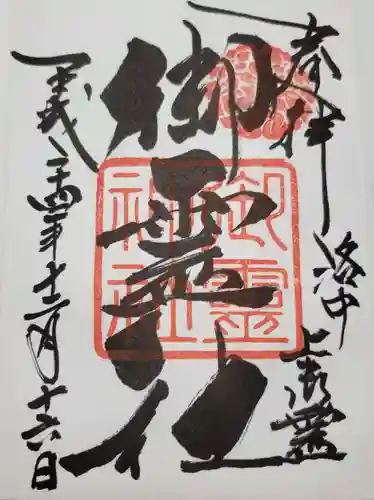 奉拝
洛中
上御霊
御靈社
御霊
神社
平成二十四年十二月十六日